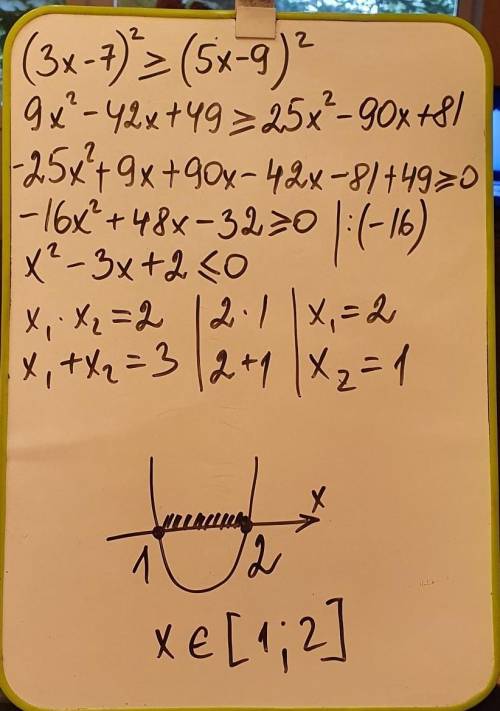 (3x-7)² ≥ (5x-9)²
9x²-42x+49 ≥ 25x²-90x+81
-25x²+9x+90x-42x-81+49 ≥ 0
-16x²+48x-32 ≥ 0 |:(-16)
x²-3x+2 ≤ 0
x₁·x₂=2 | 2·1 | x₁=2
x₁+x₂=3 | 2+1 | x₂=1
x
1 2
x ∈ [1;2]